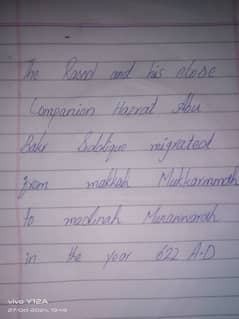 The Rasul and his close
Companion Hazrat Abu
Bakr Siddique migrated
from makkah Mukkarammah
to madinah Munawwarah
in the year 622 A.D
vivo Y12A
27 Oct 2024, 19:49